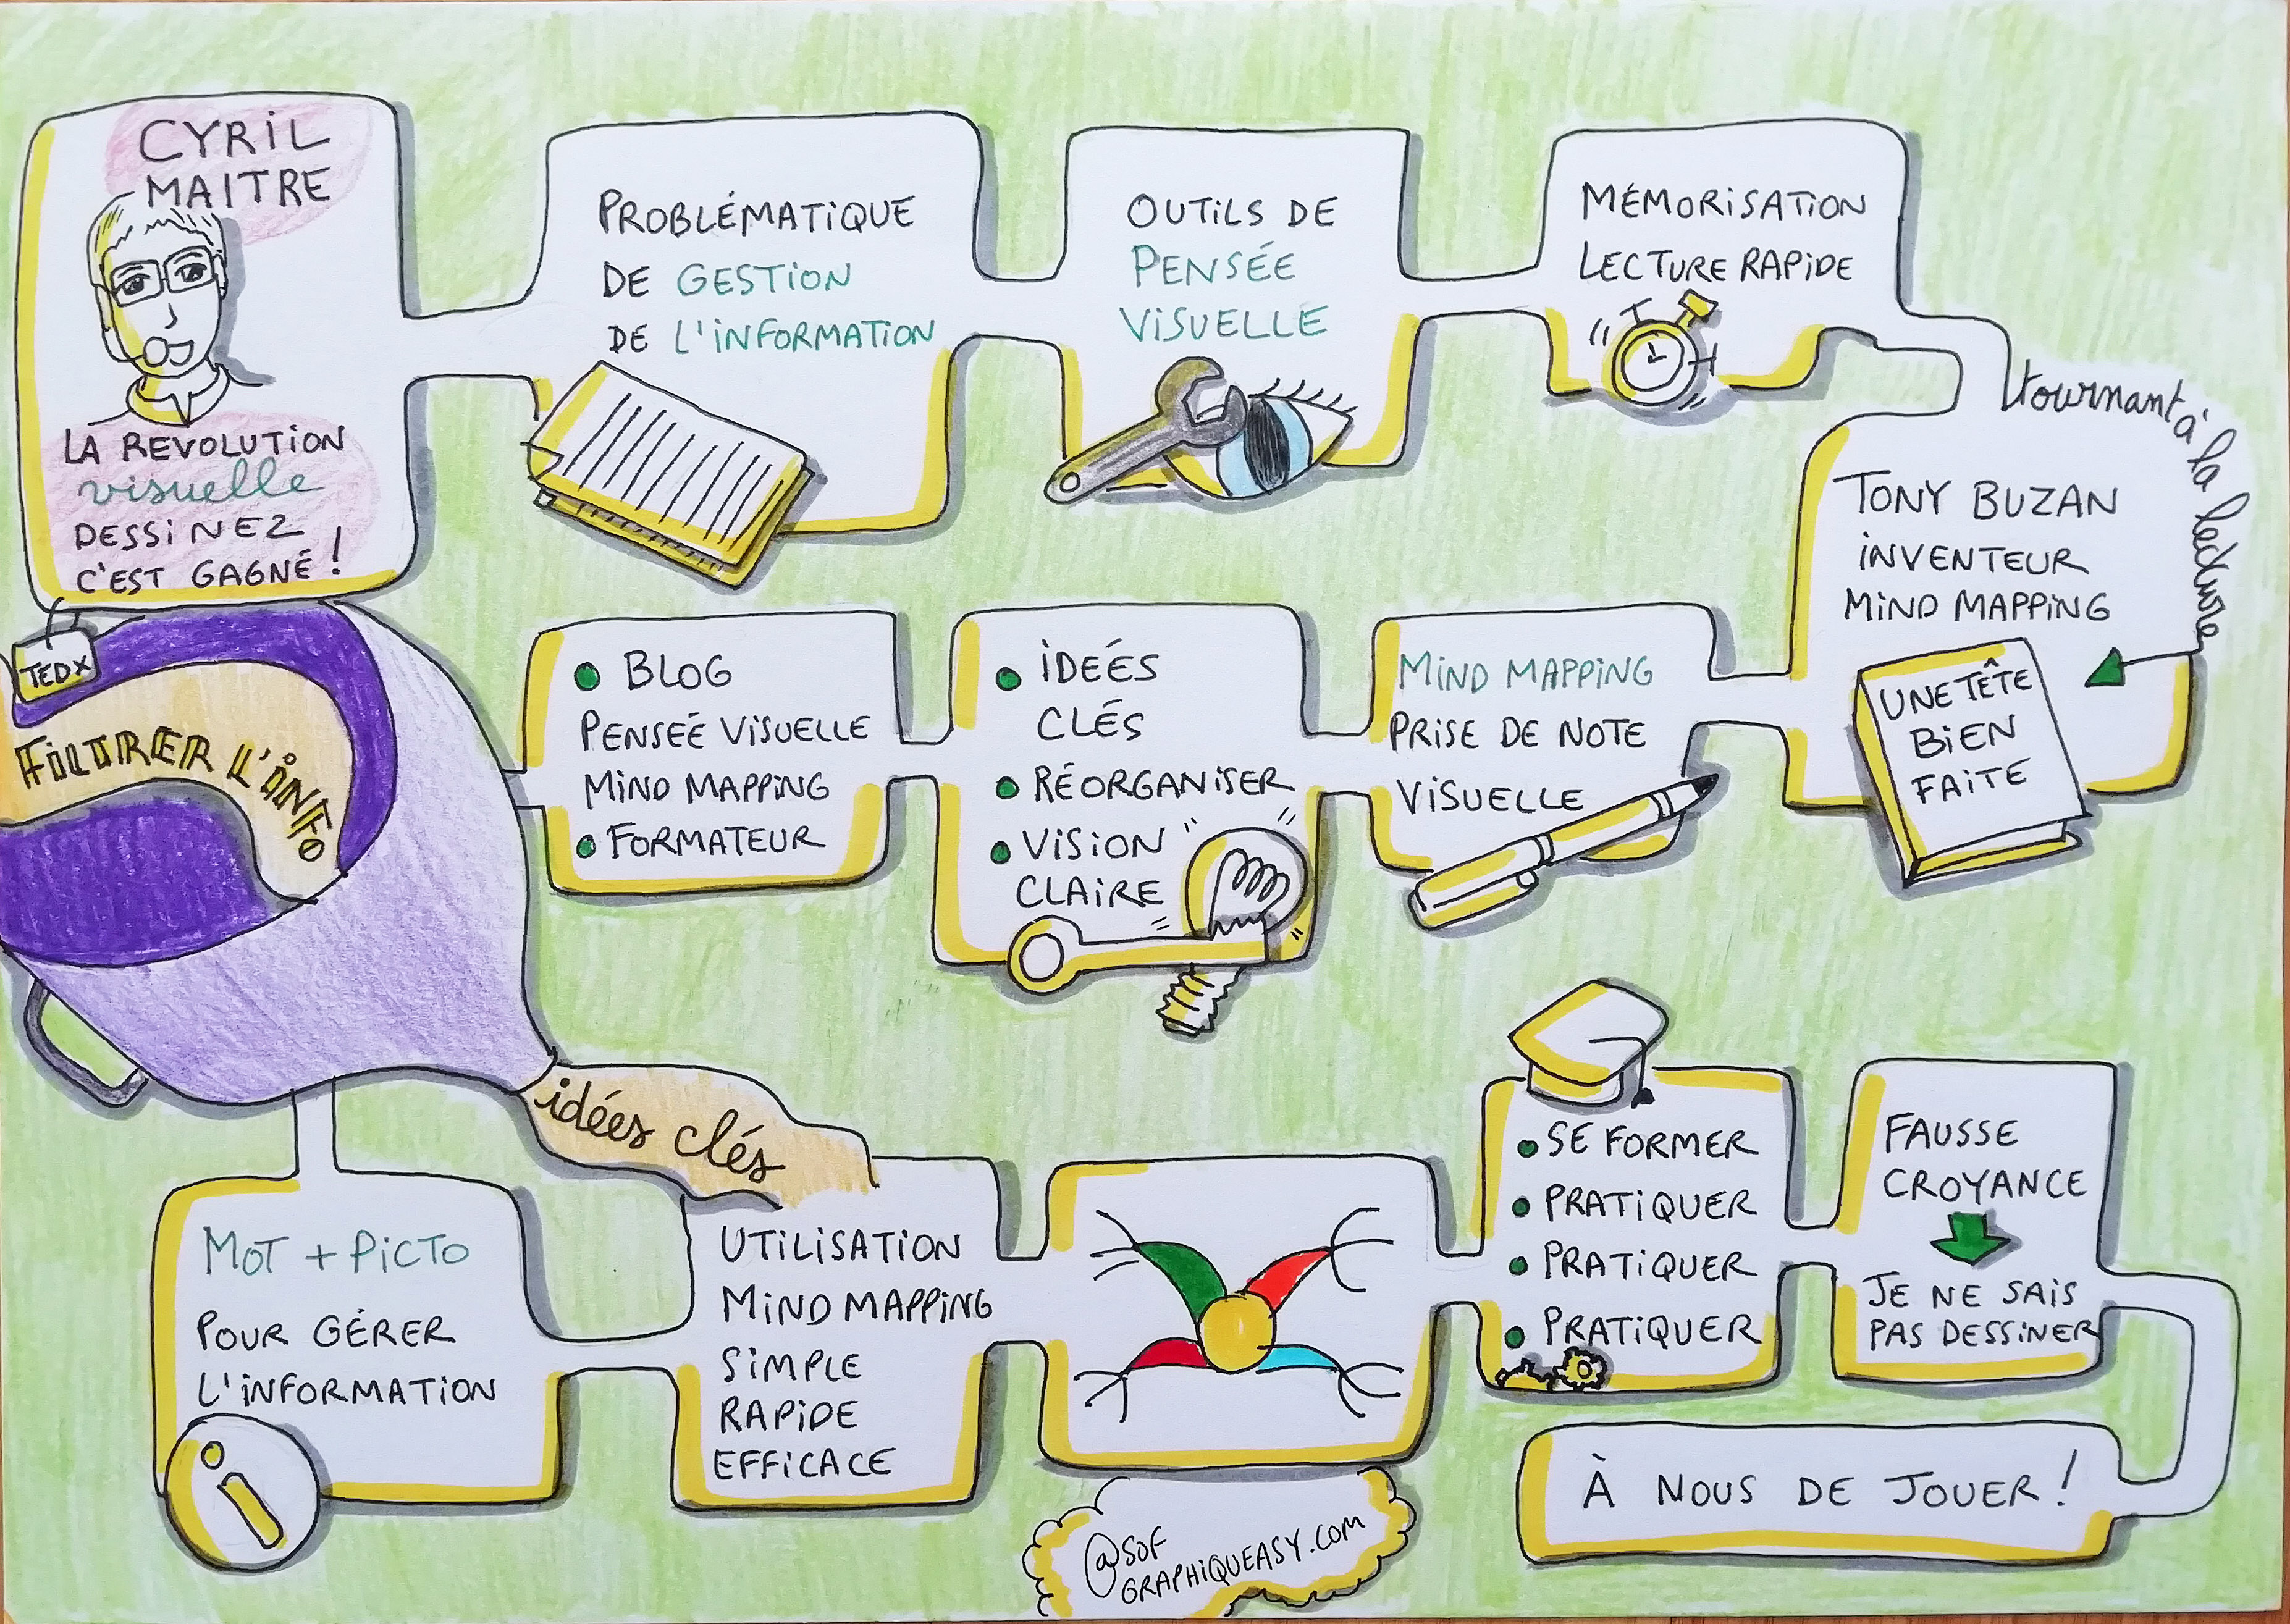 CYRIL
MAITRE
LA REVOLUTION
visuelle
DESSINEZ
C'EST GAGNÉ !
TEDX
PROBLÉMATIQUE
DE GESTION
DE L'INFORMATION
OUTILS DE
PENSÉE
VISUELLE
MÉMORISATION
LECTURE RAPIDE
tournant à la lecture
TONY BUZAN
INVENTEUR
MIND MAPPING
UNE TÊTE
BIEN
FAITE
MIND MAPPING
PRISE DE NOTE
VISUELLE
IDEÉS
CLÉS
RÉORGANISER
VISION
CLAIRE
BLOG
PENSEÉ VISUELLE
MIND MAPPING
FORMATEUR
FILTRER L'INFO
idées clés
MOT + PICTO
POUR GÉRER
L'INFORMATION
i
UTILISATION
MIND MAPPING
SIMPLE
RAPIDE
EFFICACE
SE FORMER
PRATIQUER
PRATIQUER
PRATIQUER
FAUSSE
CROYANCE
JE NE SAIS
PAS DESSINER
À NOUS DE JOUER !
@SOF
GRAPHIQUEASY.COM